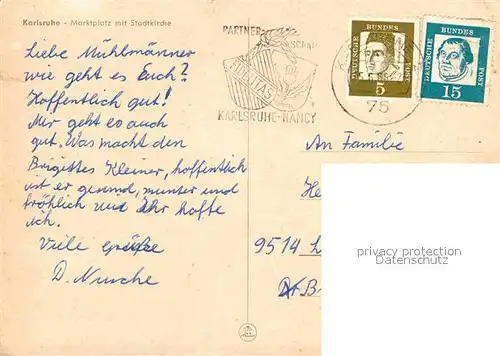 Karlsruhe - Marktplatz mit Stadtkirche
Liebe Mühlmänner
wie geht es Euch?
Hoffentlich gut!
Mir geht es auch
gut. Was macht den
Brigittes Kleiner, hoffentlich
ist er gesund, munter und
fröhlich und Ihr hoffe
ich.
Viele Grüße
D.
PARTNER
SCHAF
KARLSRUHE-NANCY
75
DEUTSCHE BUNDES POST
5
DEUTSCHE BUNDES POST
15
An Familie
He
9514
privacy protection
Datenschutz